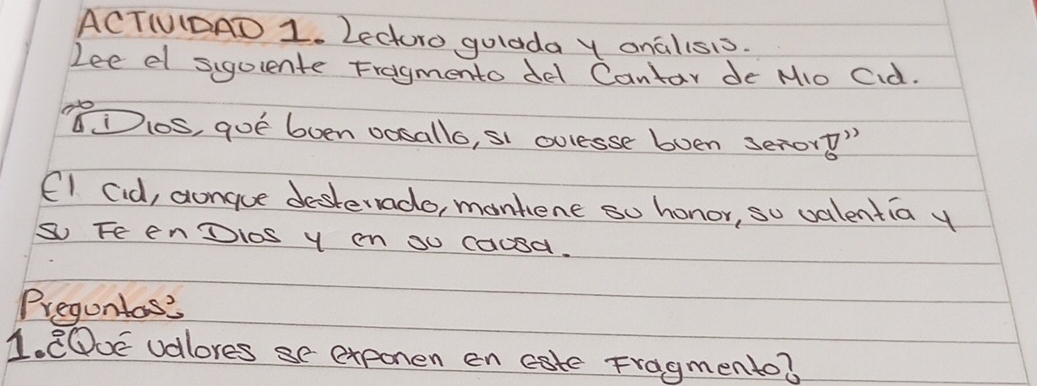 ACTIVIDAD 1. Lectura guiada y análisis.
Lee el siguiente Fragmento del Cantar de Mio Cid.
"¡Dios, qué buen vasallo, si ouiesse buen señor!"
El Cid, aunque desterrado, mantiene su honor, su valentía y
su Fe en Dios y en su causa.
Preguntas:
1. ¿Qué valores se exponen en este Fragmento?